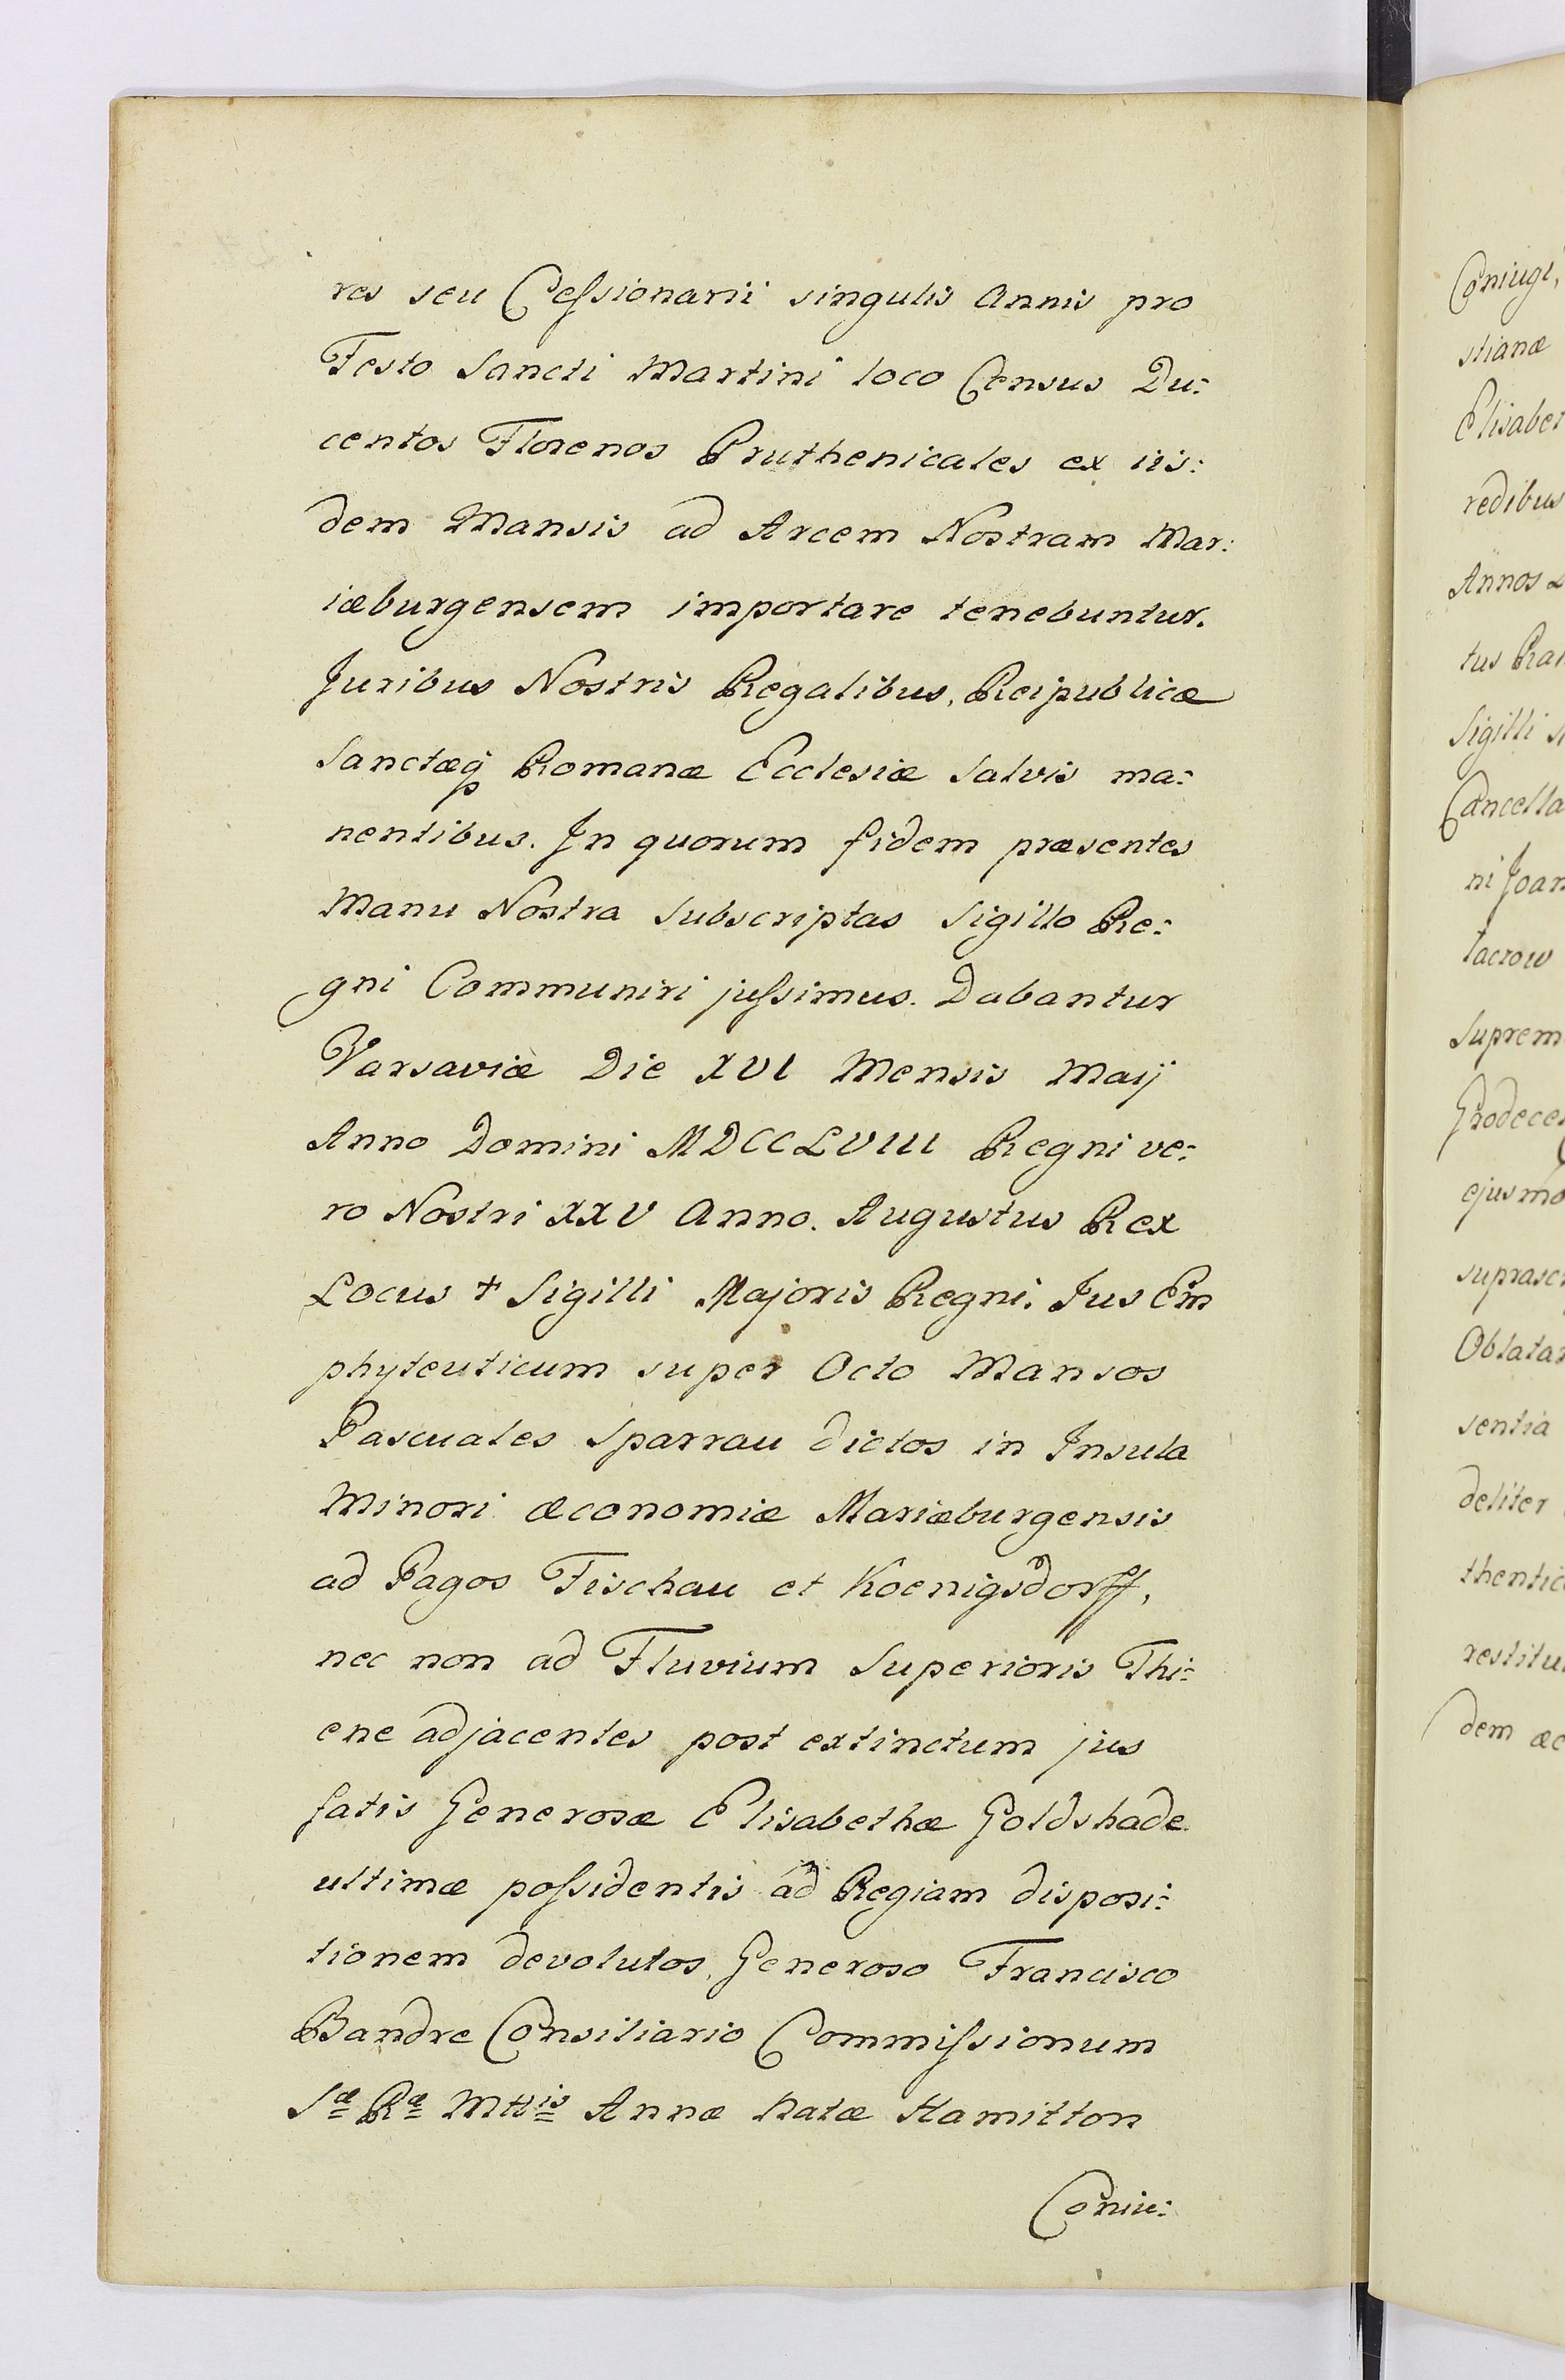 res seu Cessionarii singulis Annis pro
Festo Sancti Martini loco Census Du:
centos Florenos Pruthenicales ex iis:
dem Mansis ad Arcem Nostram Mar:
iæburgensem importare tenebuntur.
Juribus Nostris Regalibus, Reipublicæ
Sanctæq Romanæ Ecclesiæ salvis ma:
nentibus. In quorum fidem præsentes
Manu Nostra Subscriptas Sigillo Re:
gni Communiri jussimus. Dabantur
Varsaviæ Die XVI Mensis Maij
Anno Domini MDCCLVIII Regni ve:
ro Nostri XXV Anno. Augustus Rex
Locus + Sigilli Majoris Regni. Jus Em
phyteuticum super Octo Mansos
Pascuales Sparrau dictos in Insula
Minori æconomiæ Mariæburgensis
ad Pagos Fischau et Koenigsdorff,
nec non ad Fluvium Superioris Thi:
ene adjacentes post extinctum jus
fatis Generosæ Elisabethæ Goldshade
ultimæ possidentis ad Regiam disposi:
tionem devolutos, Generoso Francisco
Bandre Consiliario Commissionum
Sæ Ræ Mttis Annæ Natæ Hamilton
Coniu:
Coniugi,
stianæ
Elisabet
redibus
Annos
tus
Sigilli
Cancella
ni Joan
tacrow
Suprem
Grodece
ejusmo
suprasc
Oblatas
sentia
deliter
thentic
restitu
dem æc